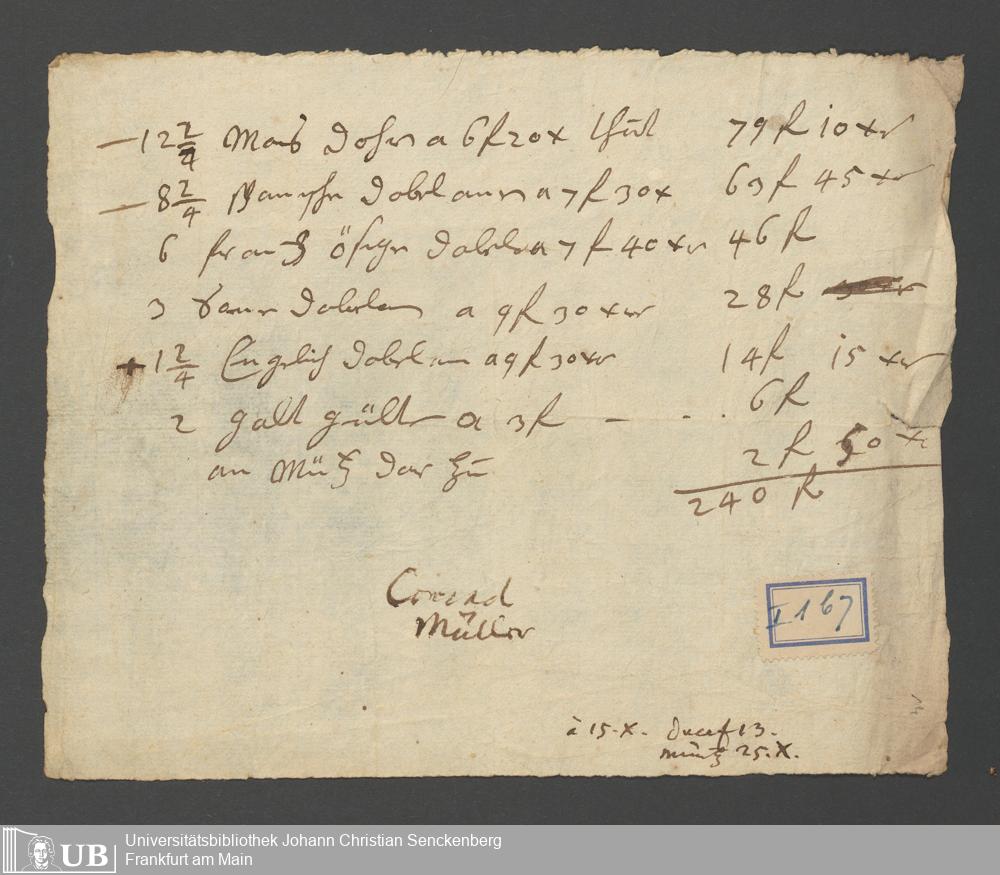 12 2/4 Mais dohrn a 6 fl 20 x thut 79 fl 10 xr
8 2/4 spanische dobelannen a 7 fl 30 x 63 fl 45 xr
6 frantz ösisch dobel a 7 fl 40 xr 46 fl
3 dobelen a 9 fl 30 xr 28 fl
1 2/4 Engelisch dobelan a 9 fl 30 xr 14 fl 15 xr
2 golt gülten a 3 fl — . . 6 fl
an Müntz dar zu 2 fl 50 xr
240 fl
Conrad
Müller
I 167
à 15.X. ducat 13.
müntz 25.X.
UB Universitätsbibliothek Johann Christian Senckenberg
Frankfurt am Main